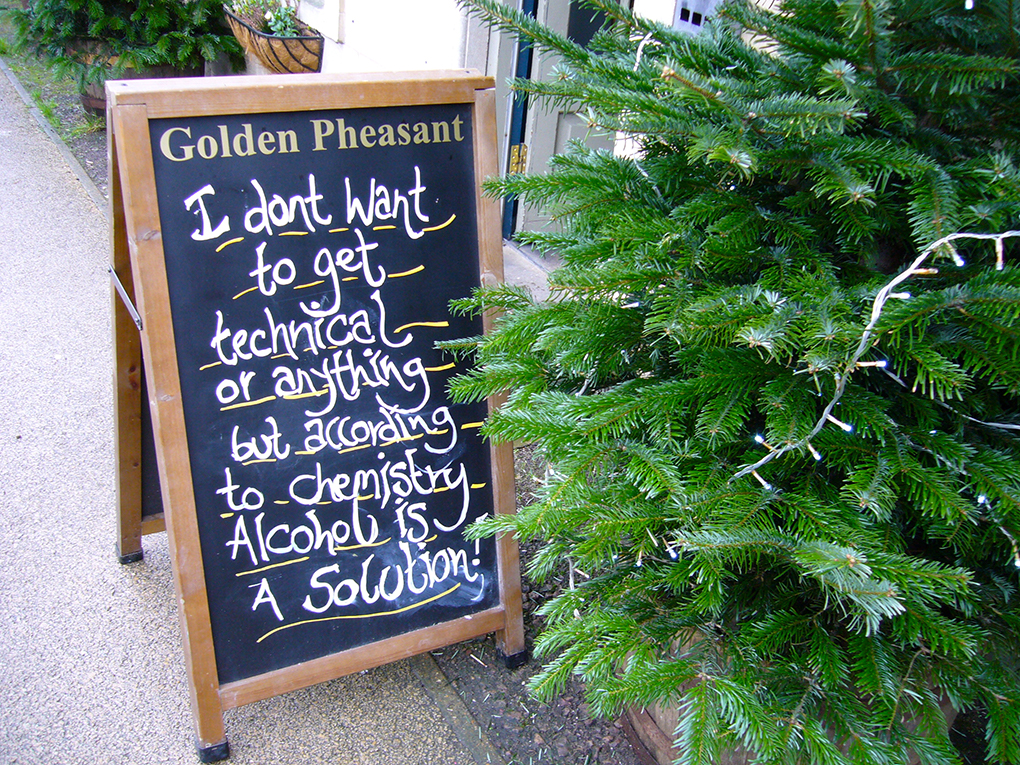 Golden Pheasant
I dont want
to get
technical
or anything
but according
to chemistry
Alcohol is
A Solution!